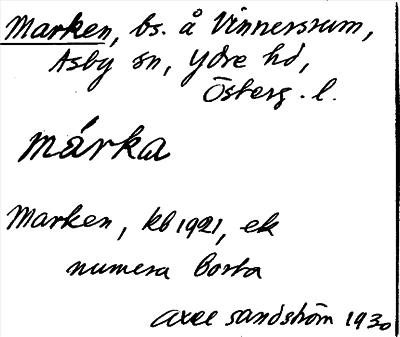 Marken, bs. å Vinnersrum,
Asby sn, Ydre hd,
Österg. l.
màrka
Marken, kb 1921, ek
numera borta
Axel Sandström 1930